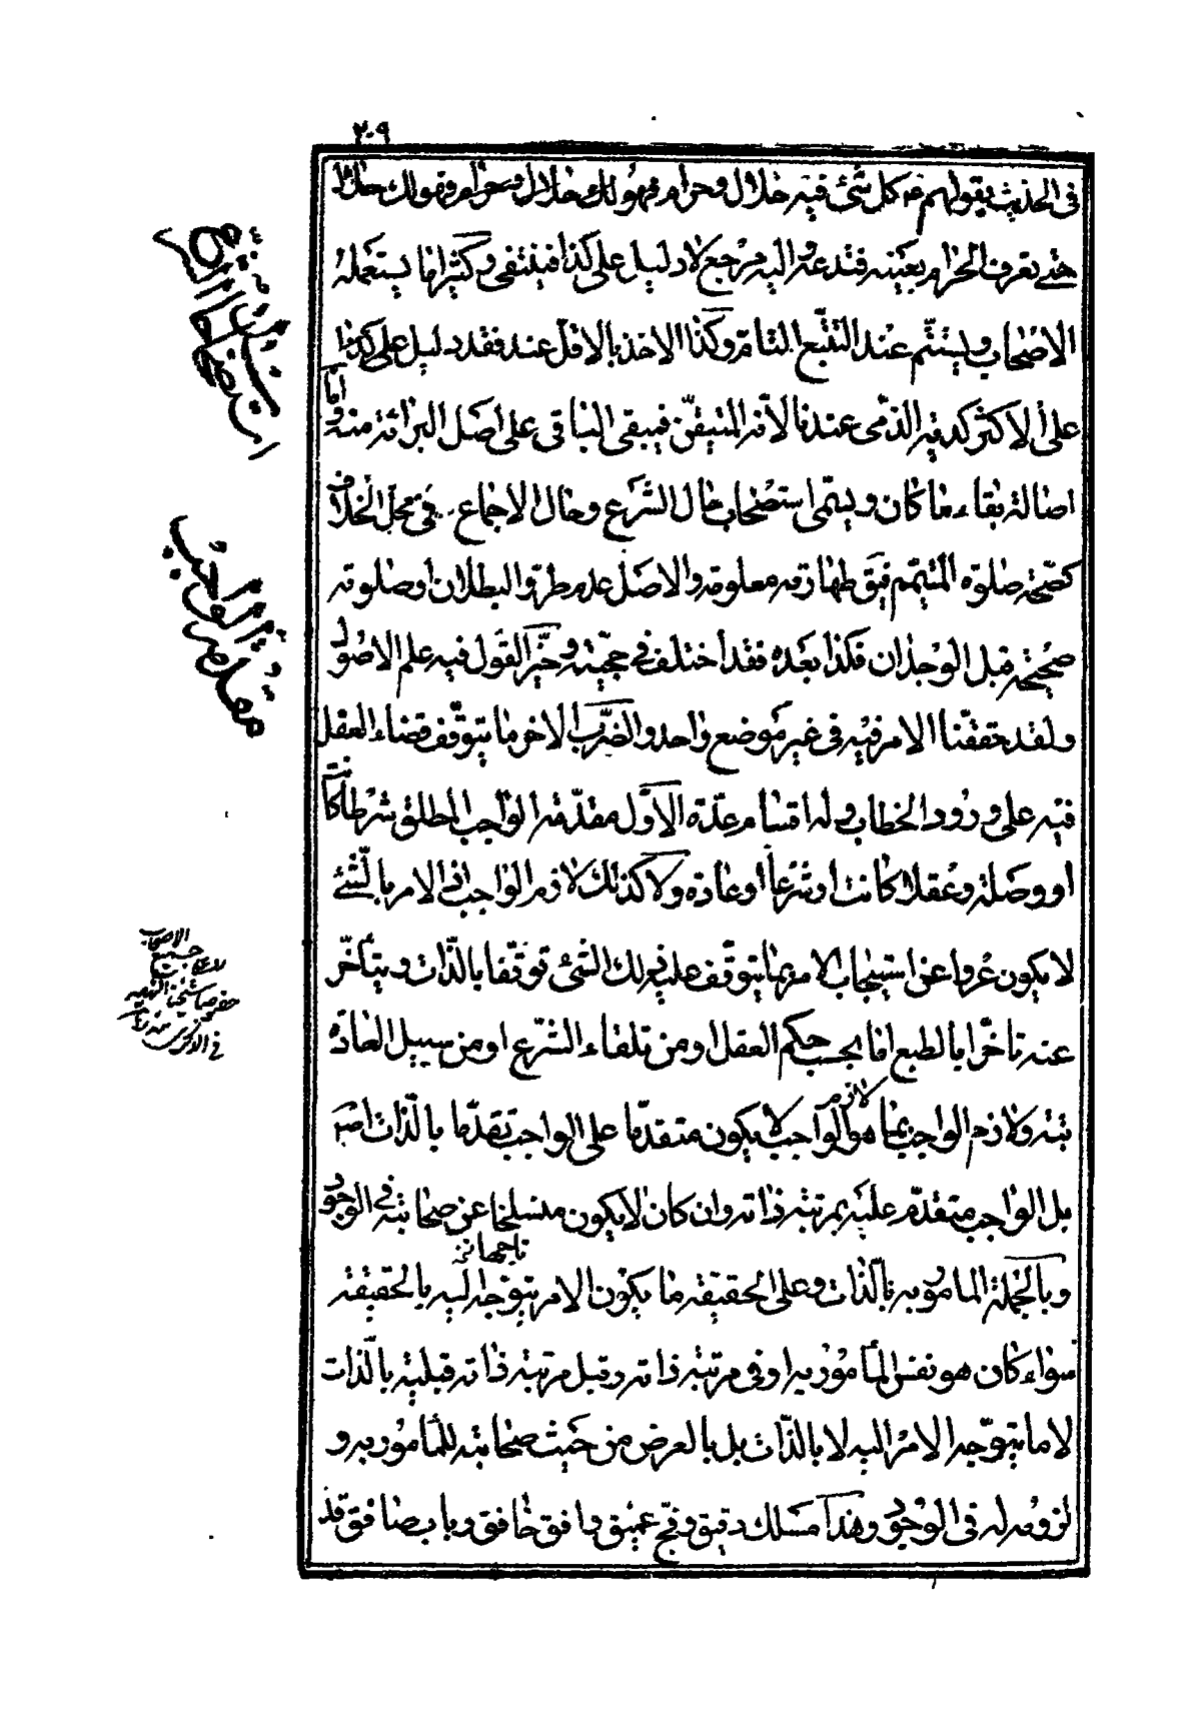 ٢٠٩
فى الحديث بقولهم ع كل شئ فيه حلال وحرام فهو لك حلال وحرام فهو لك حلال
حتى تعرف الحرام بعينه فتدعه واليه مرجع لا دليل على كذا فينتفى وكثيرا ما يستعمله
الاصحاب ويستتم عند التتبع التام وكذا الاخذ بالاقل عند فقد دليل على كذا
على الاكثر كدية الذمى عندنا لانه المتيقن فيبقى الباقى على اصل البراءة منه واما
اصالة بقاء ما كان ويسمى استصحاب حال الشرع وحال الاجماع فى محل الخلاف
كصحة صلوة المتيمم فيق طهارته معلومة والاصل عدم طرو البطلان او صلوته
صحيحة قبل الوجدان فكذا بعده فقد اختلف فى حجيته وحيز القول فيه علم الاصول
ولقد حققنا الامر فيه فى غير موضع واحد والضرب الاخر ما يتوقف قضاء العقل
فيه على ورود الخطاب وله اقسام عدة الاول مقدمة الواجب المطلق شرطا كانت
او وصلة وعقلا كانت او شرعا او عادة ولا كذلك لازم الواجب اذ الامر بالشئ
لا يكون عروا عن استيجاب الامر بما يتوقف عليه ذلك الشئ توقفا بالذات ويتأخر
عنه تاخرا بالطبع اما بحسب حكم العقل او من تلقاء الشرع او من سبيل العادة
بتة ولازم الواجب بما هو لازم الواجب لا يكون متقدما على الواجب تقدما بالذات اصلا
بل الواجب متقدم عليه بمرتبة ذاته وان كان لا يكون منسلخا عن صحابته فى الوجود
وبالجملة المامور به بالذات وعلى الحقيقة ما يكون الامر يتوجه اليه بالحقيقة
سواء كان هو نفس المأمور به او فى مرتبة ذاته وقبل مرتبة ذاته قبلية بالذات
لا ما يتوجه الامر اليه لا بالذات بل بالعرض من حيث صحابته للمأمور به و
لزومه له فى الوجود وهذا مسلك دقيق وفج عميق وافق خافق وباب صافق قد
استصحاب حال الشرع
مقدمة الواجب
الاصحاب
فى الذكرى